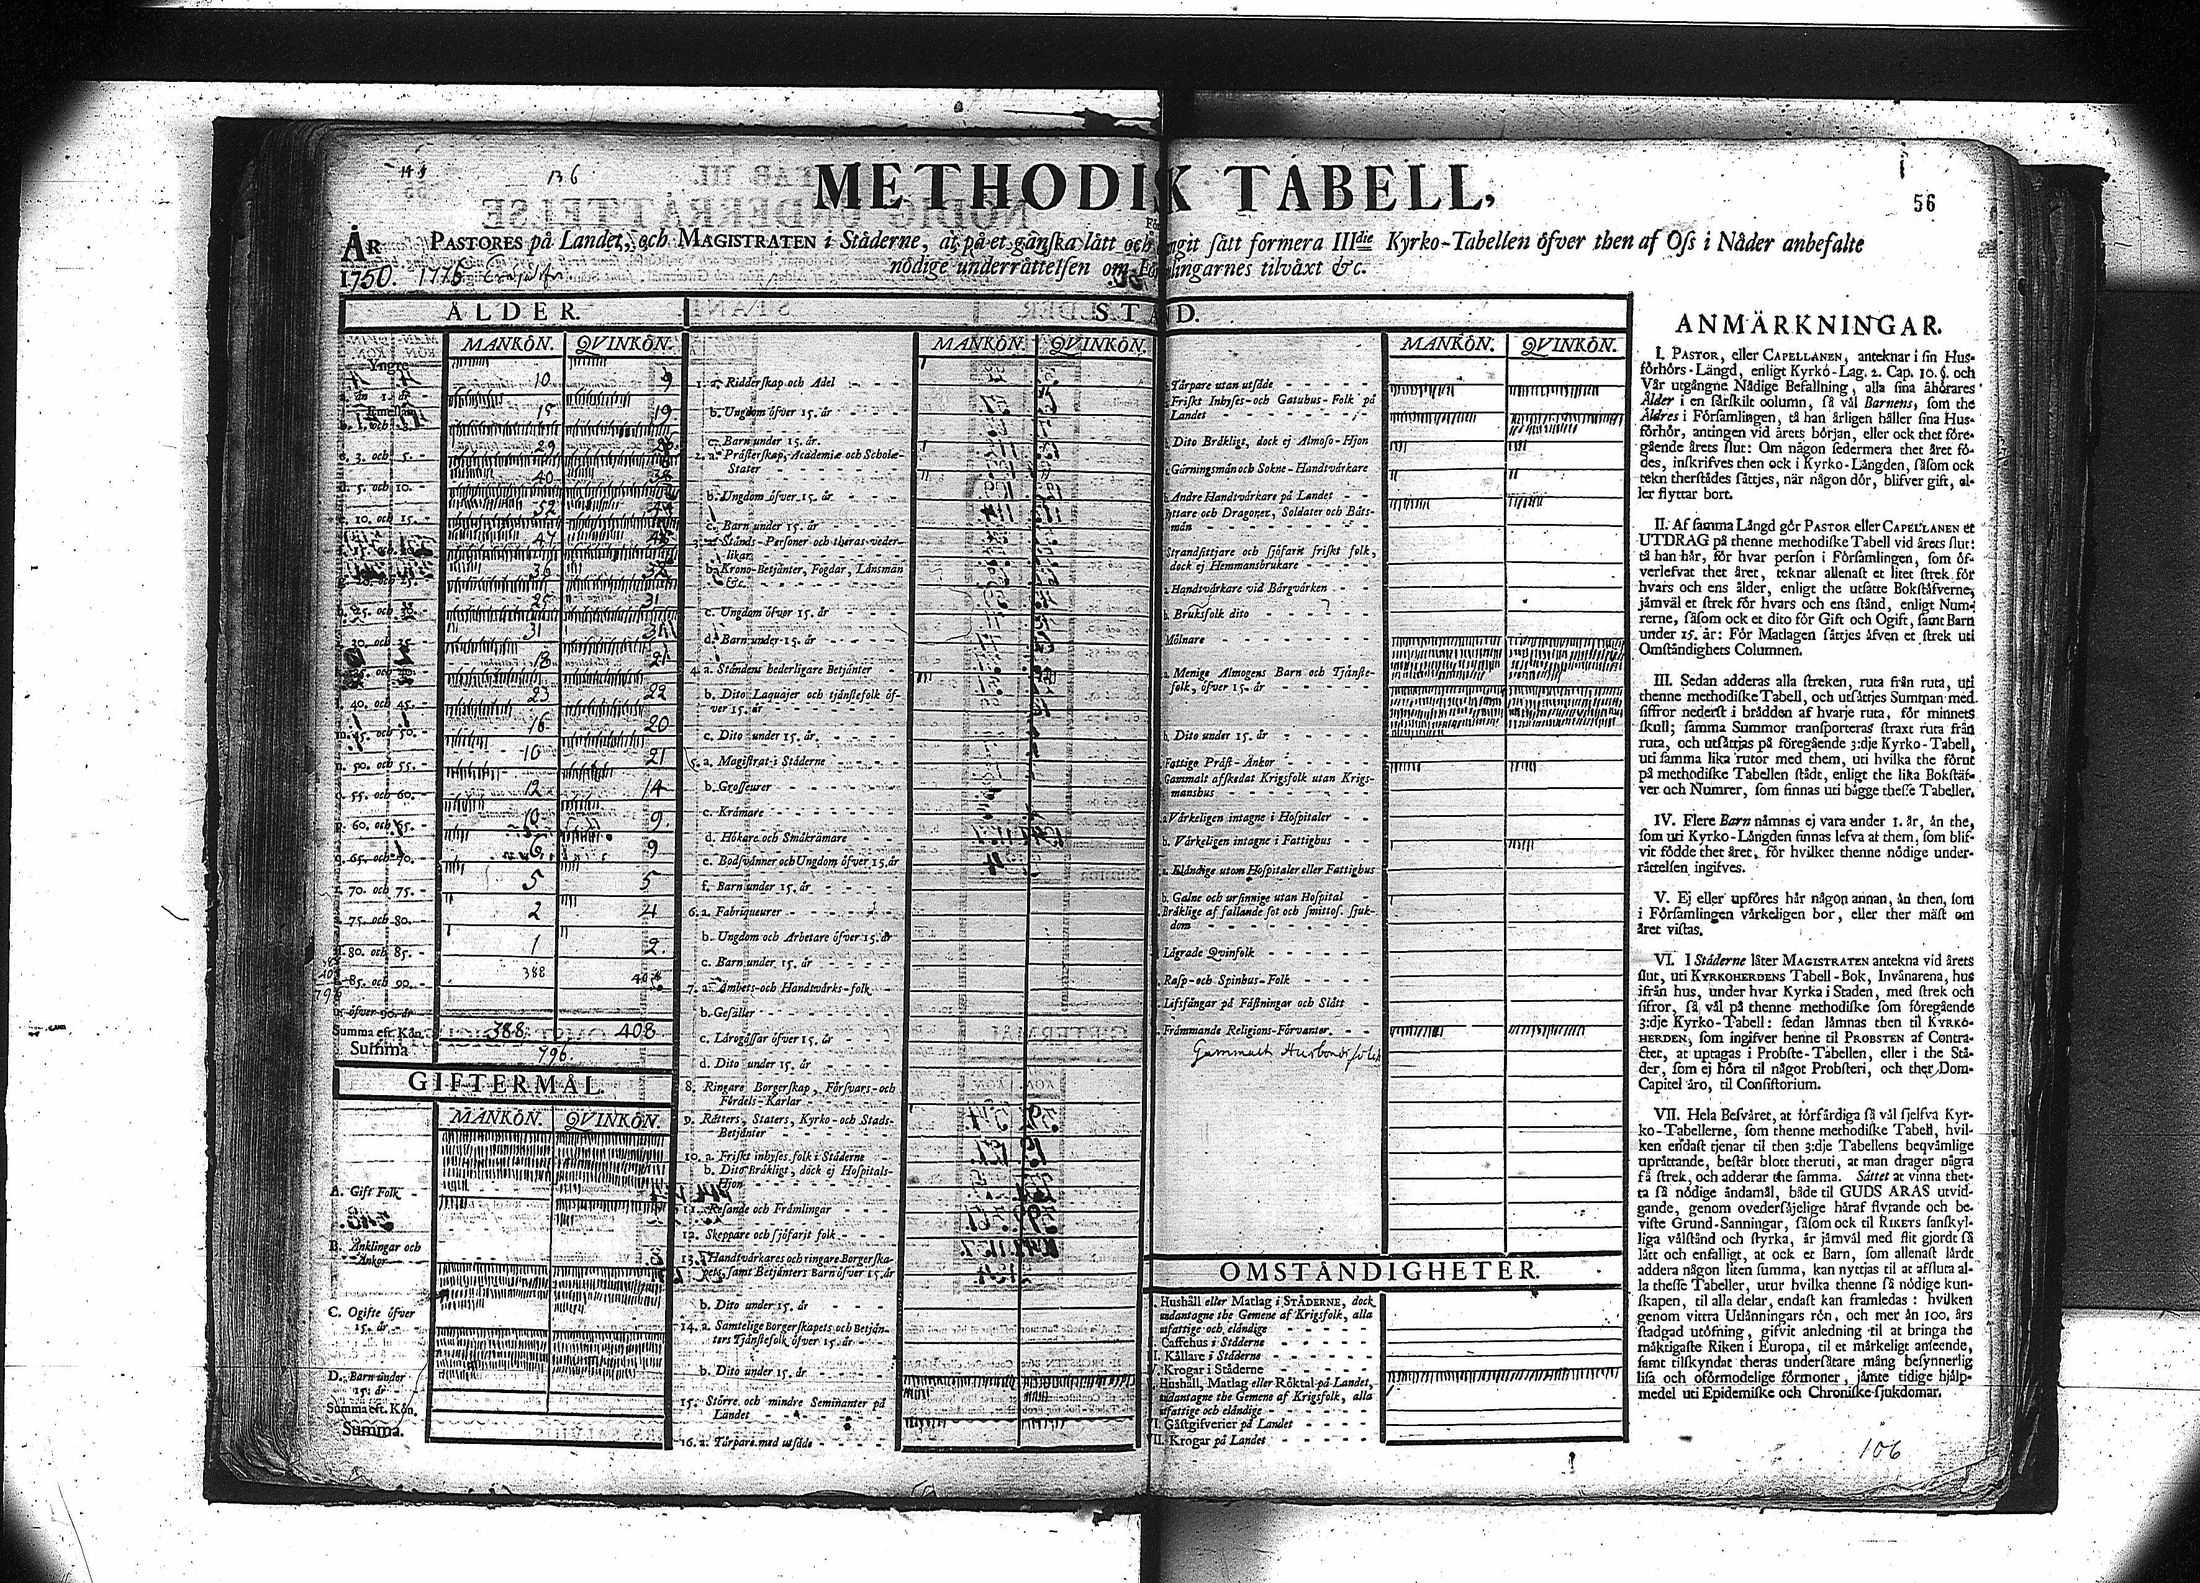 136
METHODIK TABELL,
56
ÅR PASTORES på Landet, och MAGISTRATEN i Städerne, at på et gånska lått och redigt sått formera IIIdie Kyrko-Tabellen öfver then af Oss i Nåder anbefalte
1750. 1775 nödige underråttelsen om Församlingarnes tilvåxt &c.
ÅLDER.
STÅND.
MANKÖN. QVINKÖN.
Yngre
a. ån 1. år
10 9
Emellan
b. 1. och 3.
15 19
c. 3. och 5.
29
d. 5. och 10.
40 38
e. 10. och 15.
52 44
47
36
25 31
h. 25. och 30.
31
30. och 35.
18 21
23 22
l. 40. och 45.
16 20
m. 45. och 50.
10 21
n. 50. och 55.
12 14
o. 55. och 60.
10 9.
p. 60. och 65.
6 9
q. 65. och 70.
5 5
r. 70. och 75.
2 4
s. 75. och 80.
1 2.
t. 80. och 85.
388
85. och 90.
öfver 90. år
Summa eft. Kön. 388. 408.
Summa 796.
GIFTERMÅL.
MANKÖN. QVINKÖN.
A. Gift Folk
B. Ånklingar och
Ånkor
C. Ogifte öfver
15. år
D. Barn under
15. år
Summa eft. Kön.
Summa.
MANKÖN. QVINKÖN.
1. a. Ridderskap och Adel
b. Ungdom öfver 15. år
c. Barn under 15. år.
2. a. Pråsterskap, Academiæ och Scholæ-
Stater
b. Ungdom öfver 15. år
c. Barn under 15. år
3. a. Stånds-Personer och theras veder-
likar
b. Krono-Betjånter, Fogdar, Lånsmån
&c.
c. Ungdom öfver 15. år
d. Barn under 15. år
4. a. Ståndens hederligare Betjånter
b. Dito Laquajer och tjånstefolk öf-
ver 15. år
c. Dito under 15. år.
5. a. Magistrat i Städerne
b. Grosseurer
c. Kråmare
d. Hökare och Småkråmare
e. Bodsvånner och Ungdom öfver 15. år
f. Barn under 15. år
6. a. Fabriqueurer
b. Ungdom och Arbetare öfver 15. år
c. Barn under 15. år
7. a. Åmbets-och Handtvårks-folk
b. Gesåller
c. Lårogåssar öfver 15. år
d. Dito under 15. år
8. Ringare Borgerskap, Försvars-och
Fördels-Karlar
9. Råtters, Staters, Kyrko-och Stads-
Betjånter
10. a. Friskt inhyses folk i Städerne
b. Dito Bråkligt, dock ej Hospitals-
Hjon
11. Resande och Fråmlingar
12. Skeppare och sjöfarit folk
13. a. Handtvårkares och ringare Borgerska-
pets, samt Betjånters Barn öfver 15. år
b. Dito under 15. år
14. a. Samtelige Borgerskapets och Betjån-
ters Tjånstefolk öfver 15. år
b. Dito under 15. år
15. Större och mindre Seminanter på
Landet
16. a. Tårpare med utsåde
MANKÖN. QVINKÖN.
Tårpare utan utsåde
Friskt Inhyses-och Gatuhus-Folk på
Landet
Dito Bråkligt, dock ej Almoso-Hjon
Gårningsmån och Sokne-Handtvårkare
Andre Handtvårkare på Landet
Ryttare och Dragoner, Soldater och Båts-
mån
Strandsittjare och sjöfarit friskt folk,
dock ej Hemmansbrukare
Handtvårkare vid Bårgvårken
b. Bruksfolk dito
Mölnare
Menige Almogens Barn och Tjånste-
folk, öfver 15. år
b. Dito under 15. år
Fattige Pråst-Ånkor
Gammalt afskedat Krigsfolk utan Krigs-
manshus
Vårkeligen intagne i Hospitaler
b. Vårkeligen intagne i Fattighus
Elåndige utom Hospitaler eller Fattighus
b. Galne och ursinnige utan Hospital
Bråklige af fallande sot och smittos. sjuk-
dom
Lågrade Qvinfolk
Rasp-och Spinhus-Folk
Lifsfångar på Fåstningar och Slått
Fråmmande Religions-Förvanter.
Gammalt Husbondsfolck
OMSTÅNDIGHETER.
Hushåll eller Matlag i STÄDERNE, dock
undantagne the Gemene af Krigsfolk, alla
usattige och elåndige
Caffehus i Städerne
Kållare i Städerne
Krogar i Städerne
Hushåll, Matlag eller Röktal på Landet,
undantagne the Gemene af Krigsfolk, alla
usattige och elåndige
VI. Gåstgifverier på Landet
VII. Krogar på Landet
ANMÄRKNINGAR.
I. PASTOR, eller CAPELLANEN, anteknar i sin Hus-
förhörs-Långd, enligt Kyrko-Lag. 2. Cap. 10. §. och
Vår utgångne Nådige Befallning, alla sina åhörares
Ålder i en sårskilt column, så vål Barnens, som the
Åldres i Församlingen, tå han årligen håller sina Hus-
förhör, antingen vid årets början, eller ock thet före-
gående årets slut: Om någon sedermera thet året fö-
des, inskrifves then ock i Kyrko-Långden, såsom ock
tekn therstådes såttjes, når någon dör, blifver gift, el-
ler flyttar bort.
II. Af samma Långd gör PASTOR eller CAPELLANEN et
UTDRAG på thenne methodiske Tabell vid årets slut:
tå han hår, för hvar person i Församlingen, som öf-
verlefvat thet året, teknar allenast et litet strek för
hvars och ens ålder, enligt the utsatte Bokståfverne,
jåmvål et strek för hvars och ens stånd, enligt Num-
rerne, såsom ock et dito för Gift och Ogift, samt Barn
under 15. år: För Matlagen såttjes åfven et strek uti
Omståndighets Columnen.
III. Sedan adderas alla streken, ruta från ruta, uti
thenne methodiske Tabell, och utsåttjes Summan med
siffror nederst i brådden af hvarje ruta, för minnets
skull; samma Summor transporteras straxt ruta från
ruta, och utsåttjas på föregående 3:dje Kyrko-Tabell,
uti samma lika rutor med them, uti hvilka the förut
på methodiske Tabellen stådt, enligt the lika Bokståf-
ver och Numrer, som finnas uti bågge thesse Tabeller.
IV. Flere Barn nåmnas ej vara under 1. år, ån the,
som uti Kyrko-Långden finnas lefva at them, som blif-
vit födde thet året, för hvilket thenne nödige under-
råttelsen ingifves.
V. Ej eller upföres hår någon annan, ån then, som
i Församlingen vårkeligen bor, eller ther måst om
året vistas.
VI. I Städerne låter MAGISTRATEN antekna vid årets
slut, uti KYRKOHERDENS Tabell-Bok, Invånarena, hus
ifrån hus, under hvar Kyrka i Staden, med strek och
sifror, så vål på thenne methodiske som föregående
3:dje Kyrko-Tabell: sedan låmnas then til KYRKO-
HERDEN, som ingifver henne til PROBSTEN af Contra-
ctet, at uptagas i Probste-Tabellen, eller i the Stå-
der, som ej höra til något Probsteri, och ther Dom-
Capitel åro, til Consistorium.
VII. Hela Besvåret, at förfårdiga så vål sjelfva Kyr-
ko-Tabellerne, som thenne methodiske Tabell, hvil-
ken endast tjenar til then 3:dje Tabellens beqvåmlige
upråttande, består blott theruti, at man drager några
få strek, och adderar the samma. Såttet at vinna thet-
ta så nödige åndamål, både til GUDS ÅRAS utvid-
gande, genom ovedersåjelige håraf flytande och be-
viste Grund-Sanningar, såsom ock til RIKETS sanskyl-
liga vålstånd och styrka, år jåmvål med flit gjordt så
lått och enfalligt, at ock et Barn, som allenast lårdt
addera någon liten summa, kan nyttjas til at afsluta al-
la thesse Tabeller, utur hvilka thenne så nödige kun-
skapen, til alla delar, endast kan framledas: hvilken
genom vittra Utlånningars rön, och mer ån 100. års
stadgad utöfning, gifvit anledning til at bringa the
måktigaste Riken i Europa, til et mårkeligt anseende,
samt tilskyndat theras undersåtare mång besynnerlig
lisa och oförmodelige förmoner, jåmte tidige hjålp-
medel uti Epidemiske och Chroniske sjukdomar.
106